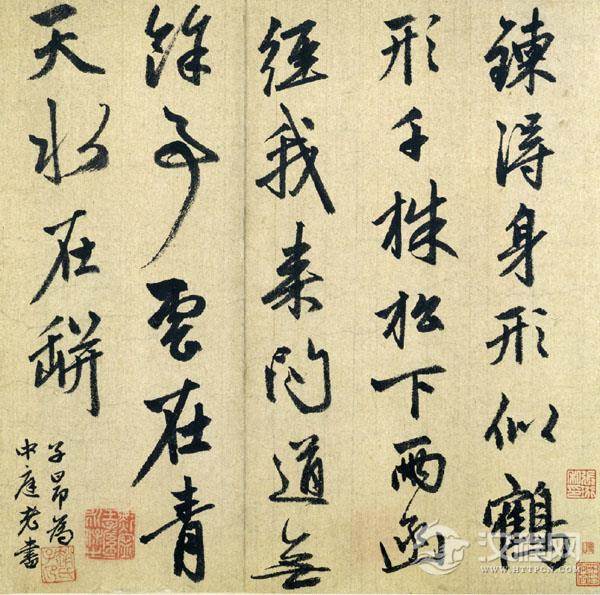 鍊得身形似鶴
形千株松下兩函
經我來問道無
餘事雲在青
天水在缾
子昂為
中庭老書
汉程网
WWW.HTTPCN.COM